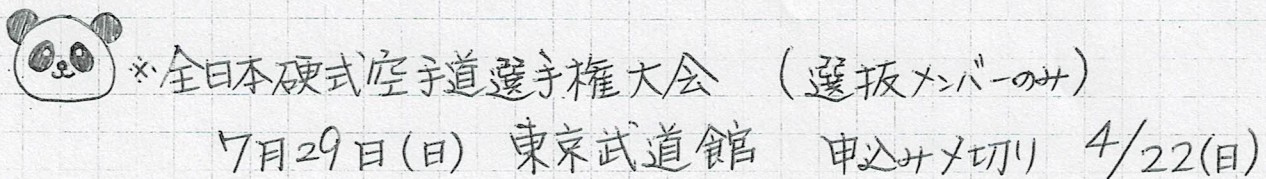 ※全日本硬式空手道選手権大会 (選抜メンバーのみ)
7月29日(日) 東京武道館 申込み〆切り 4/22(日)